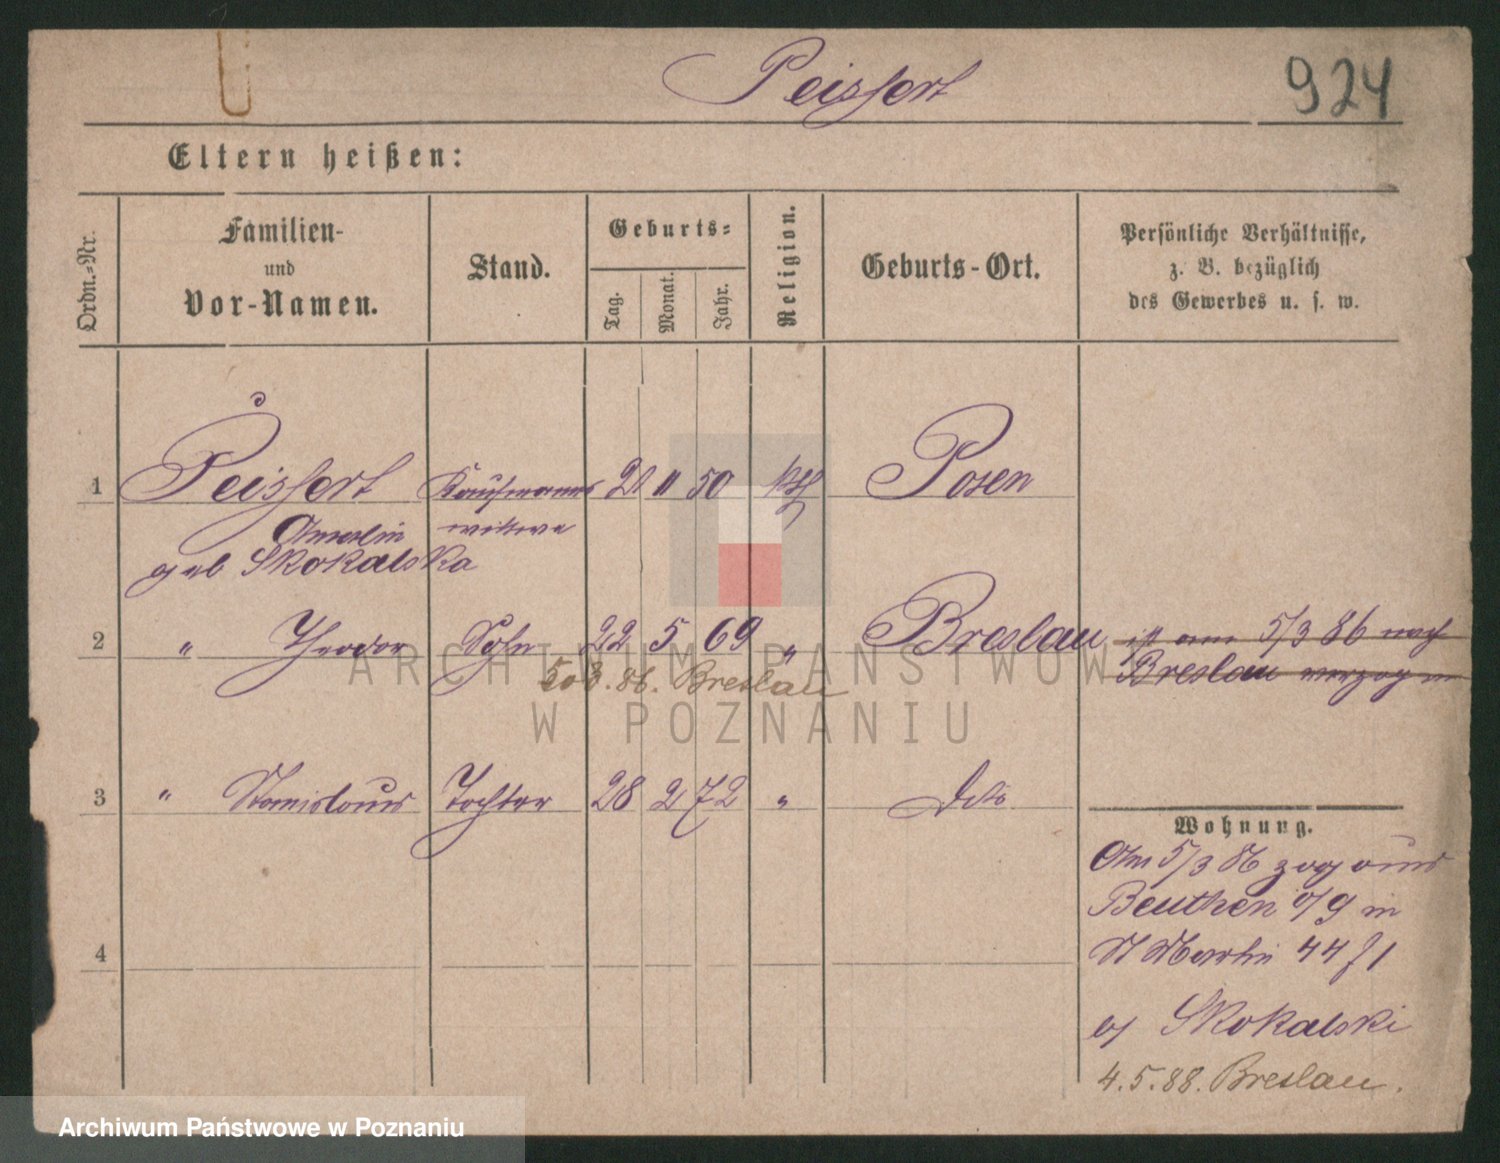 Peissert
924
Eltern heißen:
Ordn.=Nr.
Familien-
und
Vor-Namen.
Stand.
Geburts=
Tag.
Monat.
Jahr.
Religion.
Geburts-Ort.
Persönliche Verhältnisse,
z. B. bezüglich
des Gewerbes u. s. w.
1 Peissert Kaufmanns 21 " 50 kth Posen
witwe
geb Skokalska
2 " Theodor Sohn 22 5 69 " Breslau ist am 5/3 86 nach
Breslau verzogen
5.3.86. Breslau
3 " Stanislaus Tochter 28 2 72 " Dito
Wohnung.
Am 5/3 86 zog aus
Beuthen in
St Martin 44
Skokalski
4.5.88. Breslau.
4
ARCHIWUM PAŃSTWOWE
W POZNANIU
Archiwum Państwowe w Poznaniu